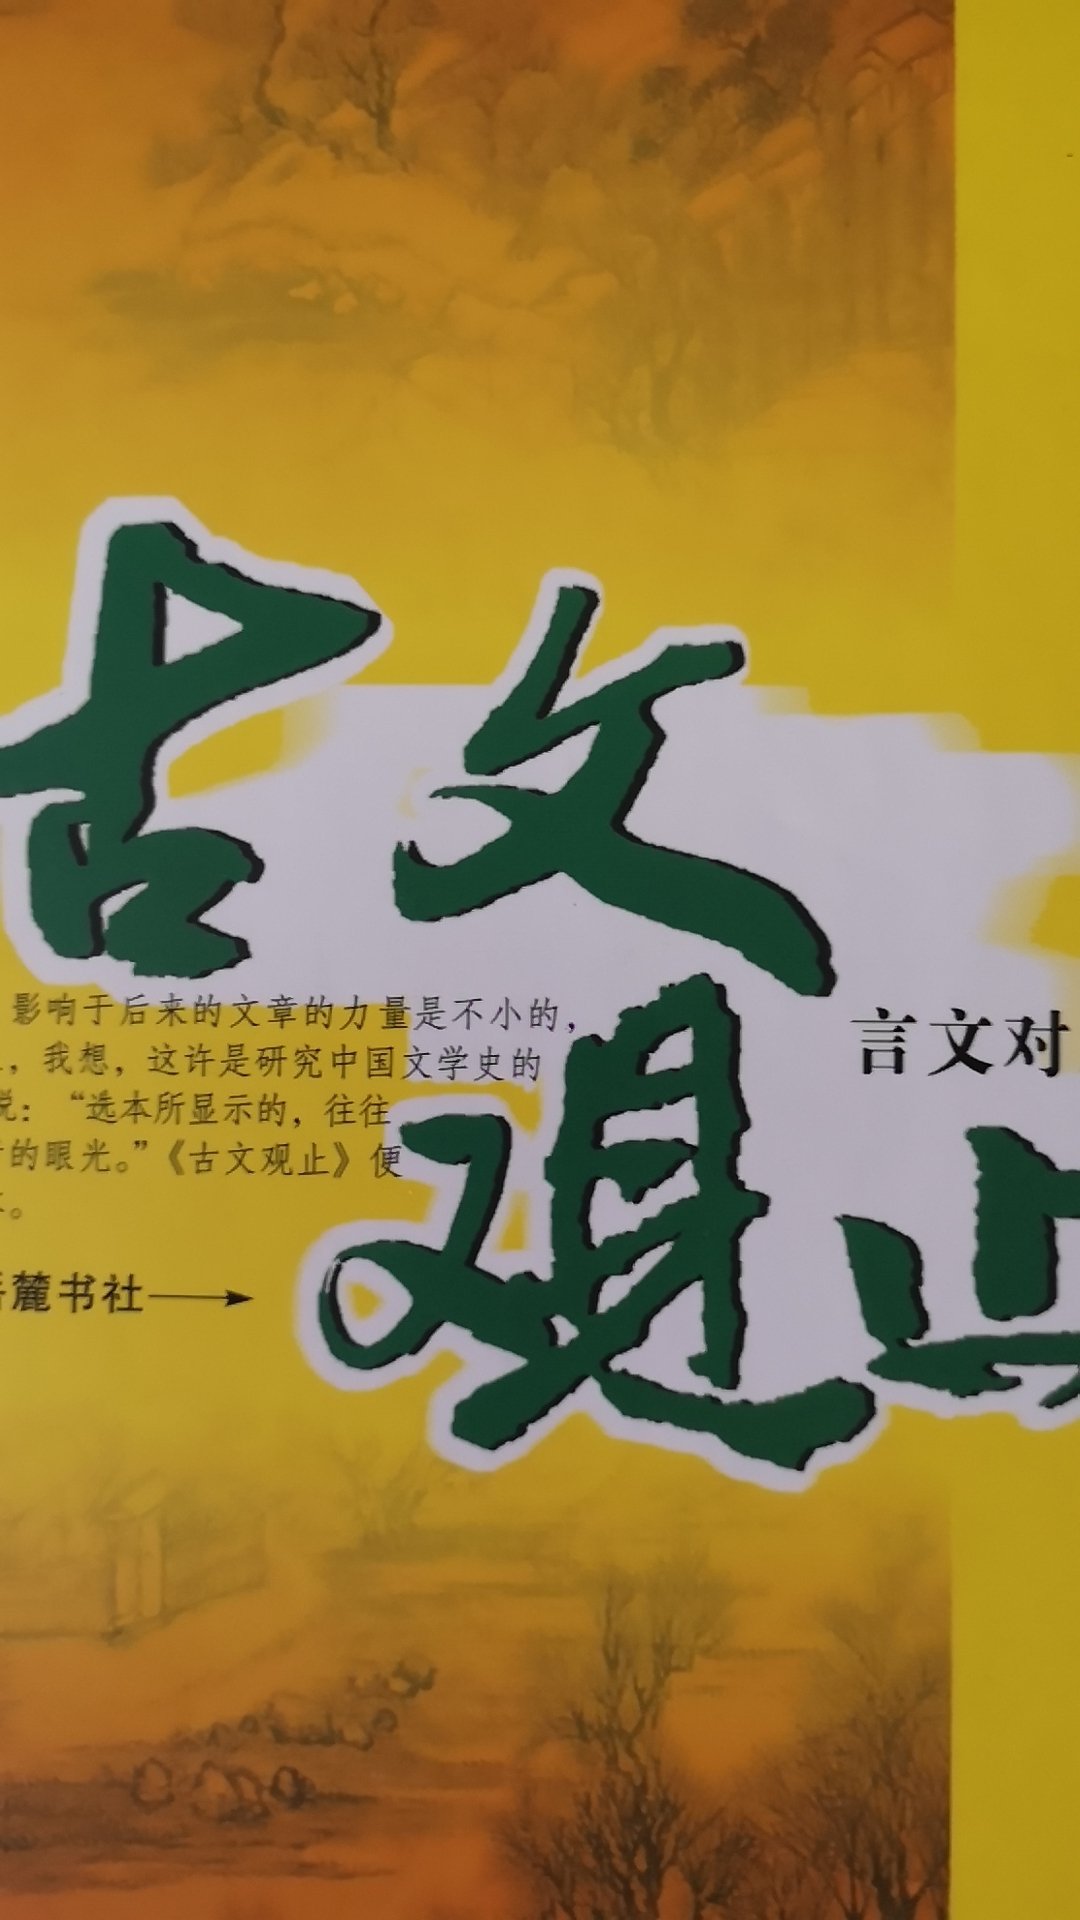 古文
观止
影响于后来的文章的力量是不小的，
，我想，这许是研究中国文学史的
说：“选本所显示的，往往
的眼光。”《古文观止》便
。
言文对
麓书社